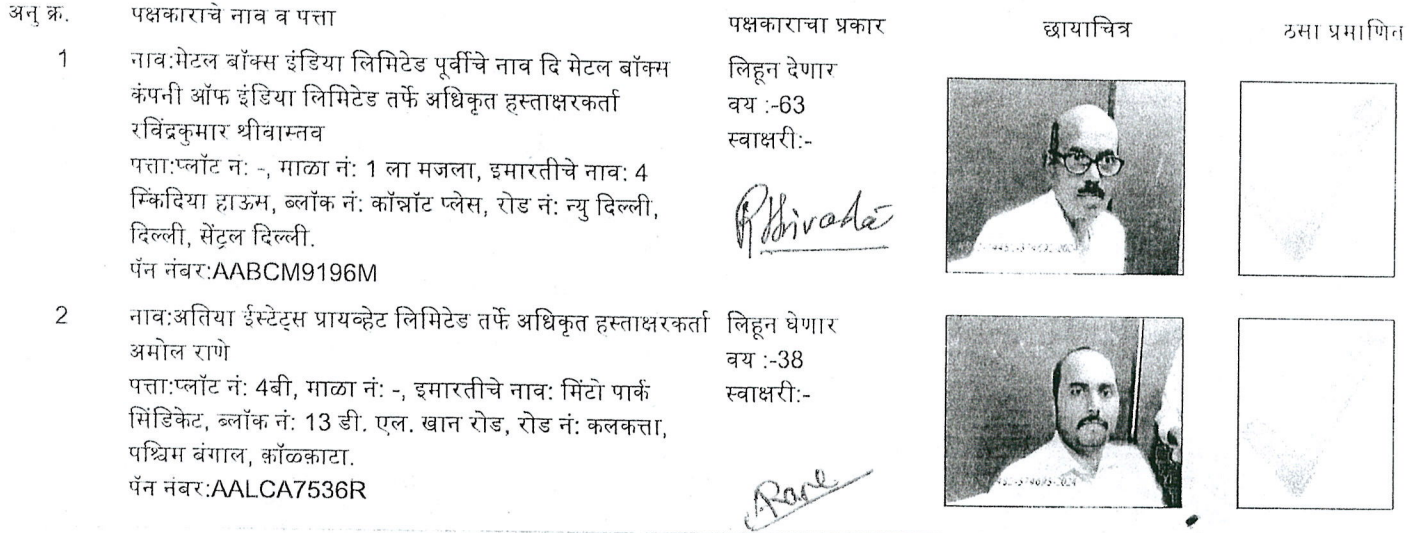 अनु क्र. पक्षकाराचे नाव व पत्ता पक्षकाराचा प्रकार छायाचित्र ठसा प्रमाणित
1 नाव:मेटल बॉक्स इंडिया लिमिटेड पूर्वीचे नाव दि मेटल बॉक्स
कंपनी ऑफ इंडिया लिमिटेड तर्फे अधिकृत हस्ताक्षरकर्ता
रविंद्रकुमार श्रीवास्तव
पत्ता:प्लॉट नं: -, माळा नं: 1 ला मजला, इमारतीचे नाव: 4
स्किंदिया हाऊस, ब्लॉक नं: कॉन्नॉट प्लेस, रोड नं: न्यु दिल्ली,
दिल्ली, सेंट्रल दिल्ली.
पॅन नंबर:AABCM9196M
लिहून देणार
वय :-63
स्वाक्षरी:-
2 नाव:अतिया ईस्टेट्स प्रायव्हेट लिमिटेड तर्फे अधिकृत हस्ताक्षरकर्ता
अमोल राणे
पत्ता:प्लॉट नं: 4बी, माळा नं: -, इमारतीचे नाव: मिंटो पार्क
सिंडिकेट, ब्लॉक नं: 13 डी. एल. खान रोड, रोड नं: कलकत्ता,
पश्चिम बंगाल, कॉळ्काटा.
पॅन नंबर:AALCA7536R
लिहून घेणार
वय :-38
स्वाक्षरी:-
ARane